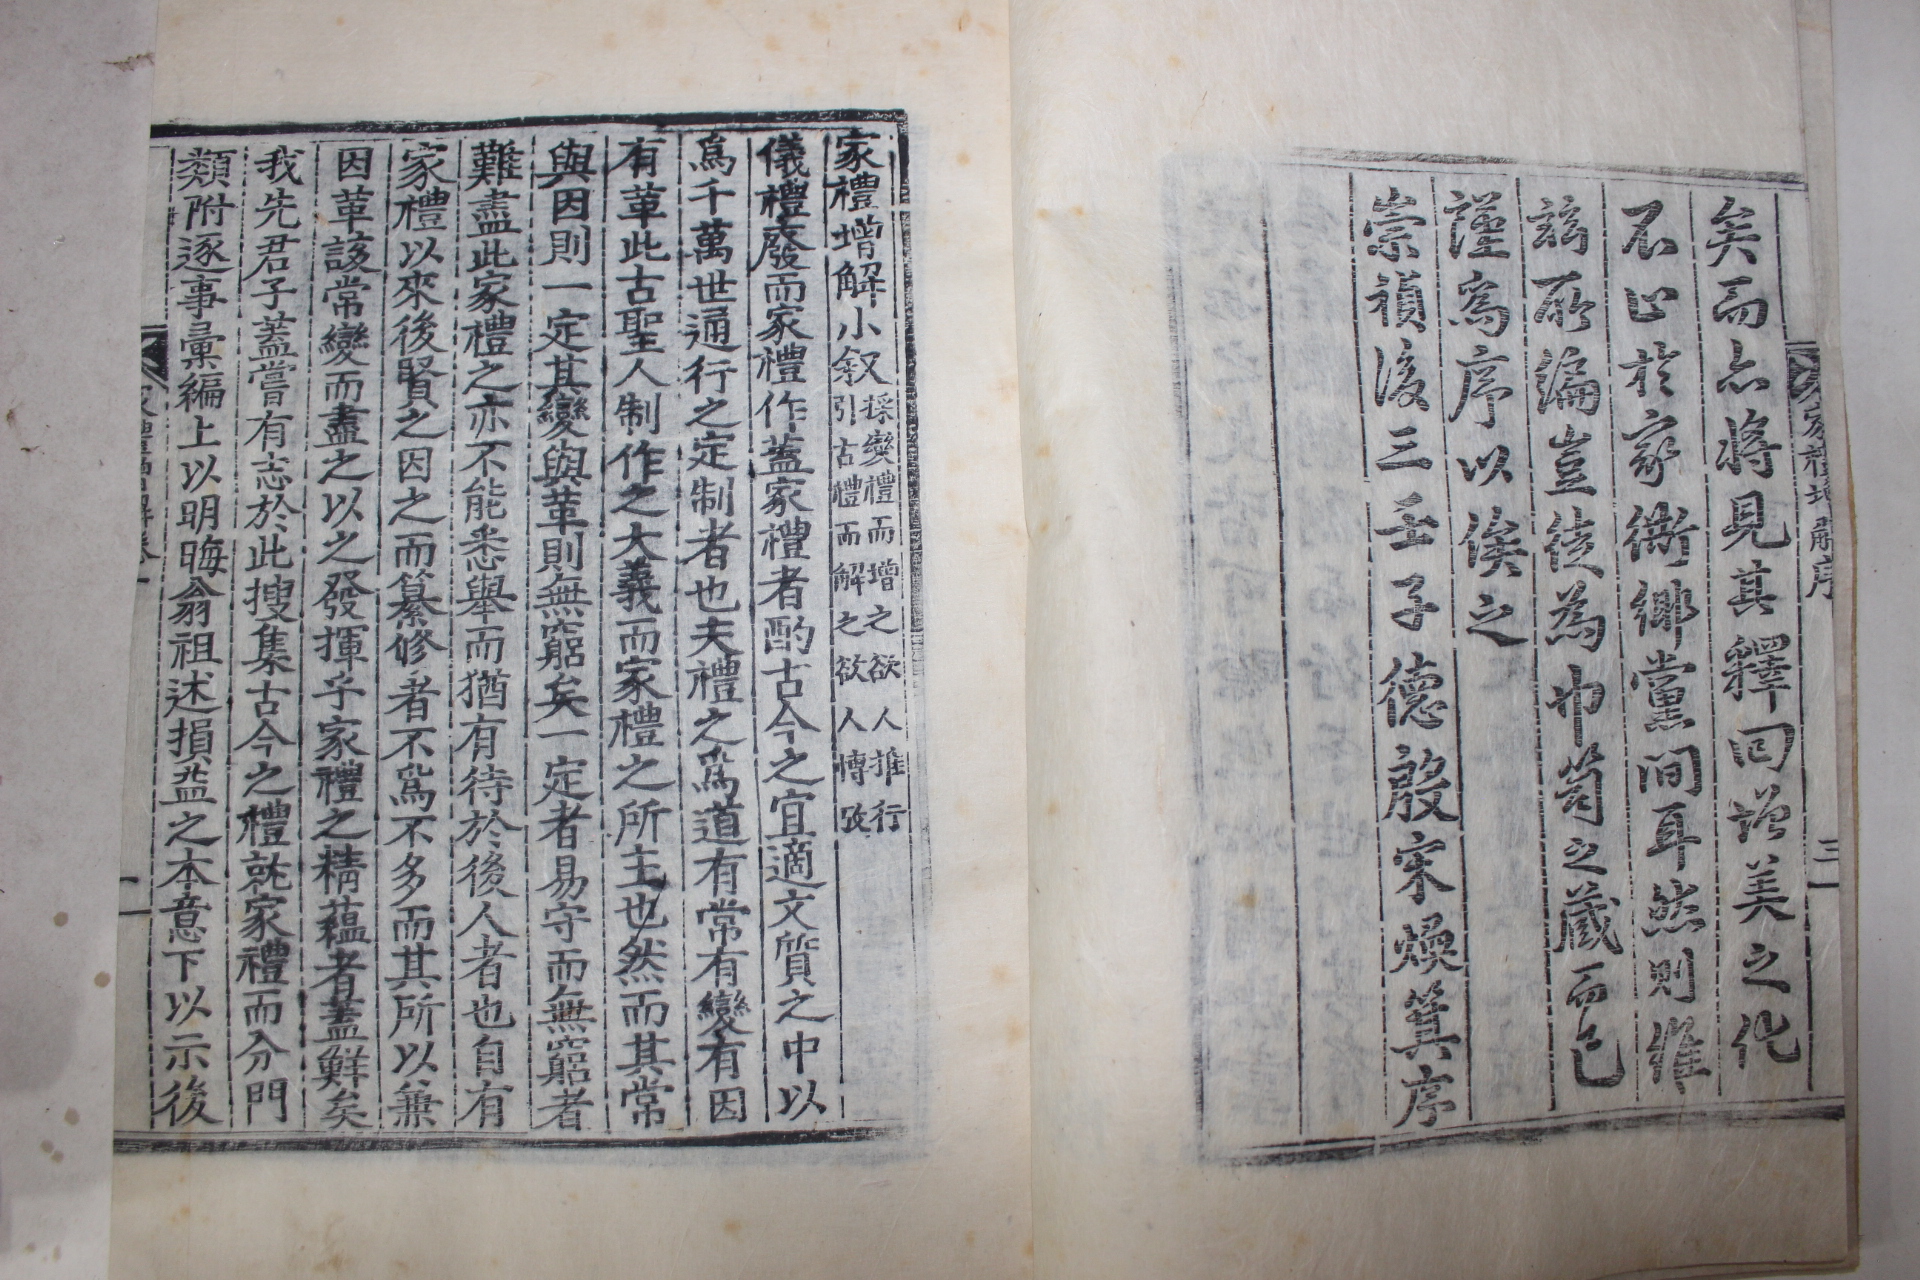 矣而亦將見其釋回增美之化
不止於家衖鄉黨間耳然則維
玆所編豈徒為巾笥之藏而已
謹為序以俟之
崇禎後三壬子德殷宋煥箕序
家禮增解序
三
家禮增解小叙
採變禮而增之欲人推行
引古禮而解之欲人博攷
儀禮廢而家禮作蓋家禮者酌古今之宜適文質之中以
爲千萬世通行之定制者也夫禮之爲道有常有變有因
有革此古聖人制作之大義而家禮之所主也然而其常
與因則一定其變與革則無窮矣一定者易守而無窮者
難盡此家禮之亦不能悉舉而猶有待於後人者也自有
家禮以來後賢之因之而纂修者不爲不多而其所以兼
因革該常變而盡之以之發揮乎家禮之精蘊者蓋鮮矣
我先君子蓋嘗有志於此搜集古今之禮就家禮而分門
類附逐事彙編上以明晦翁祖述損益之本意下以示後
一